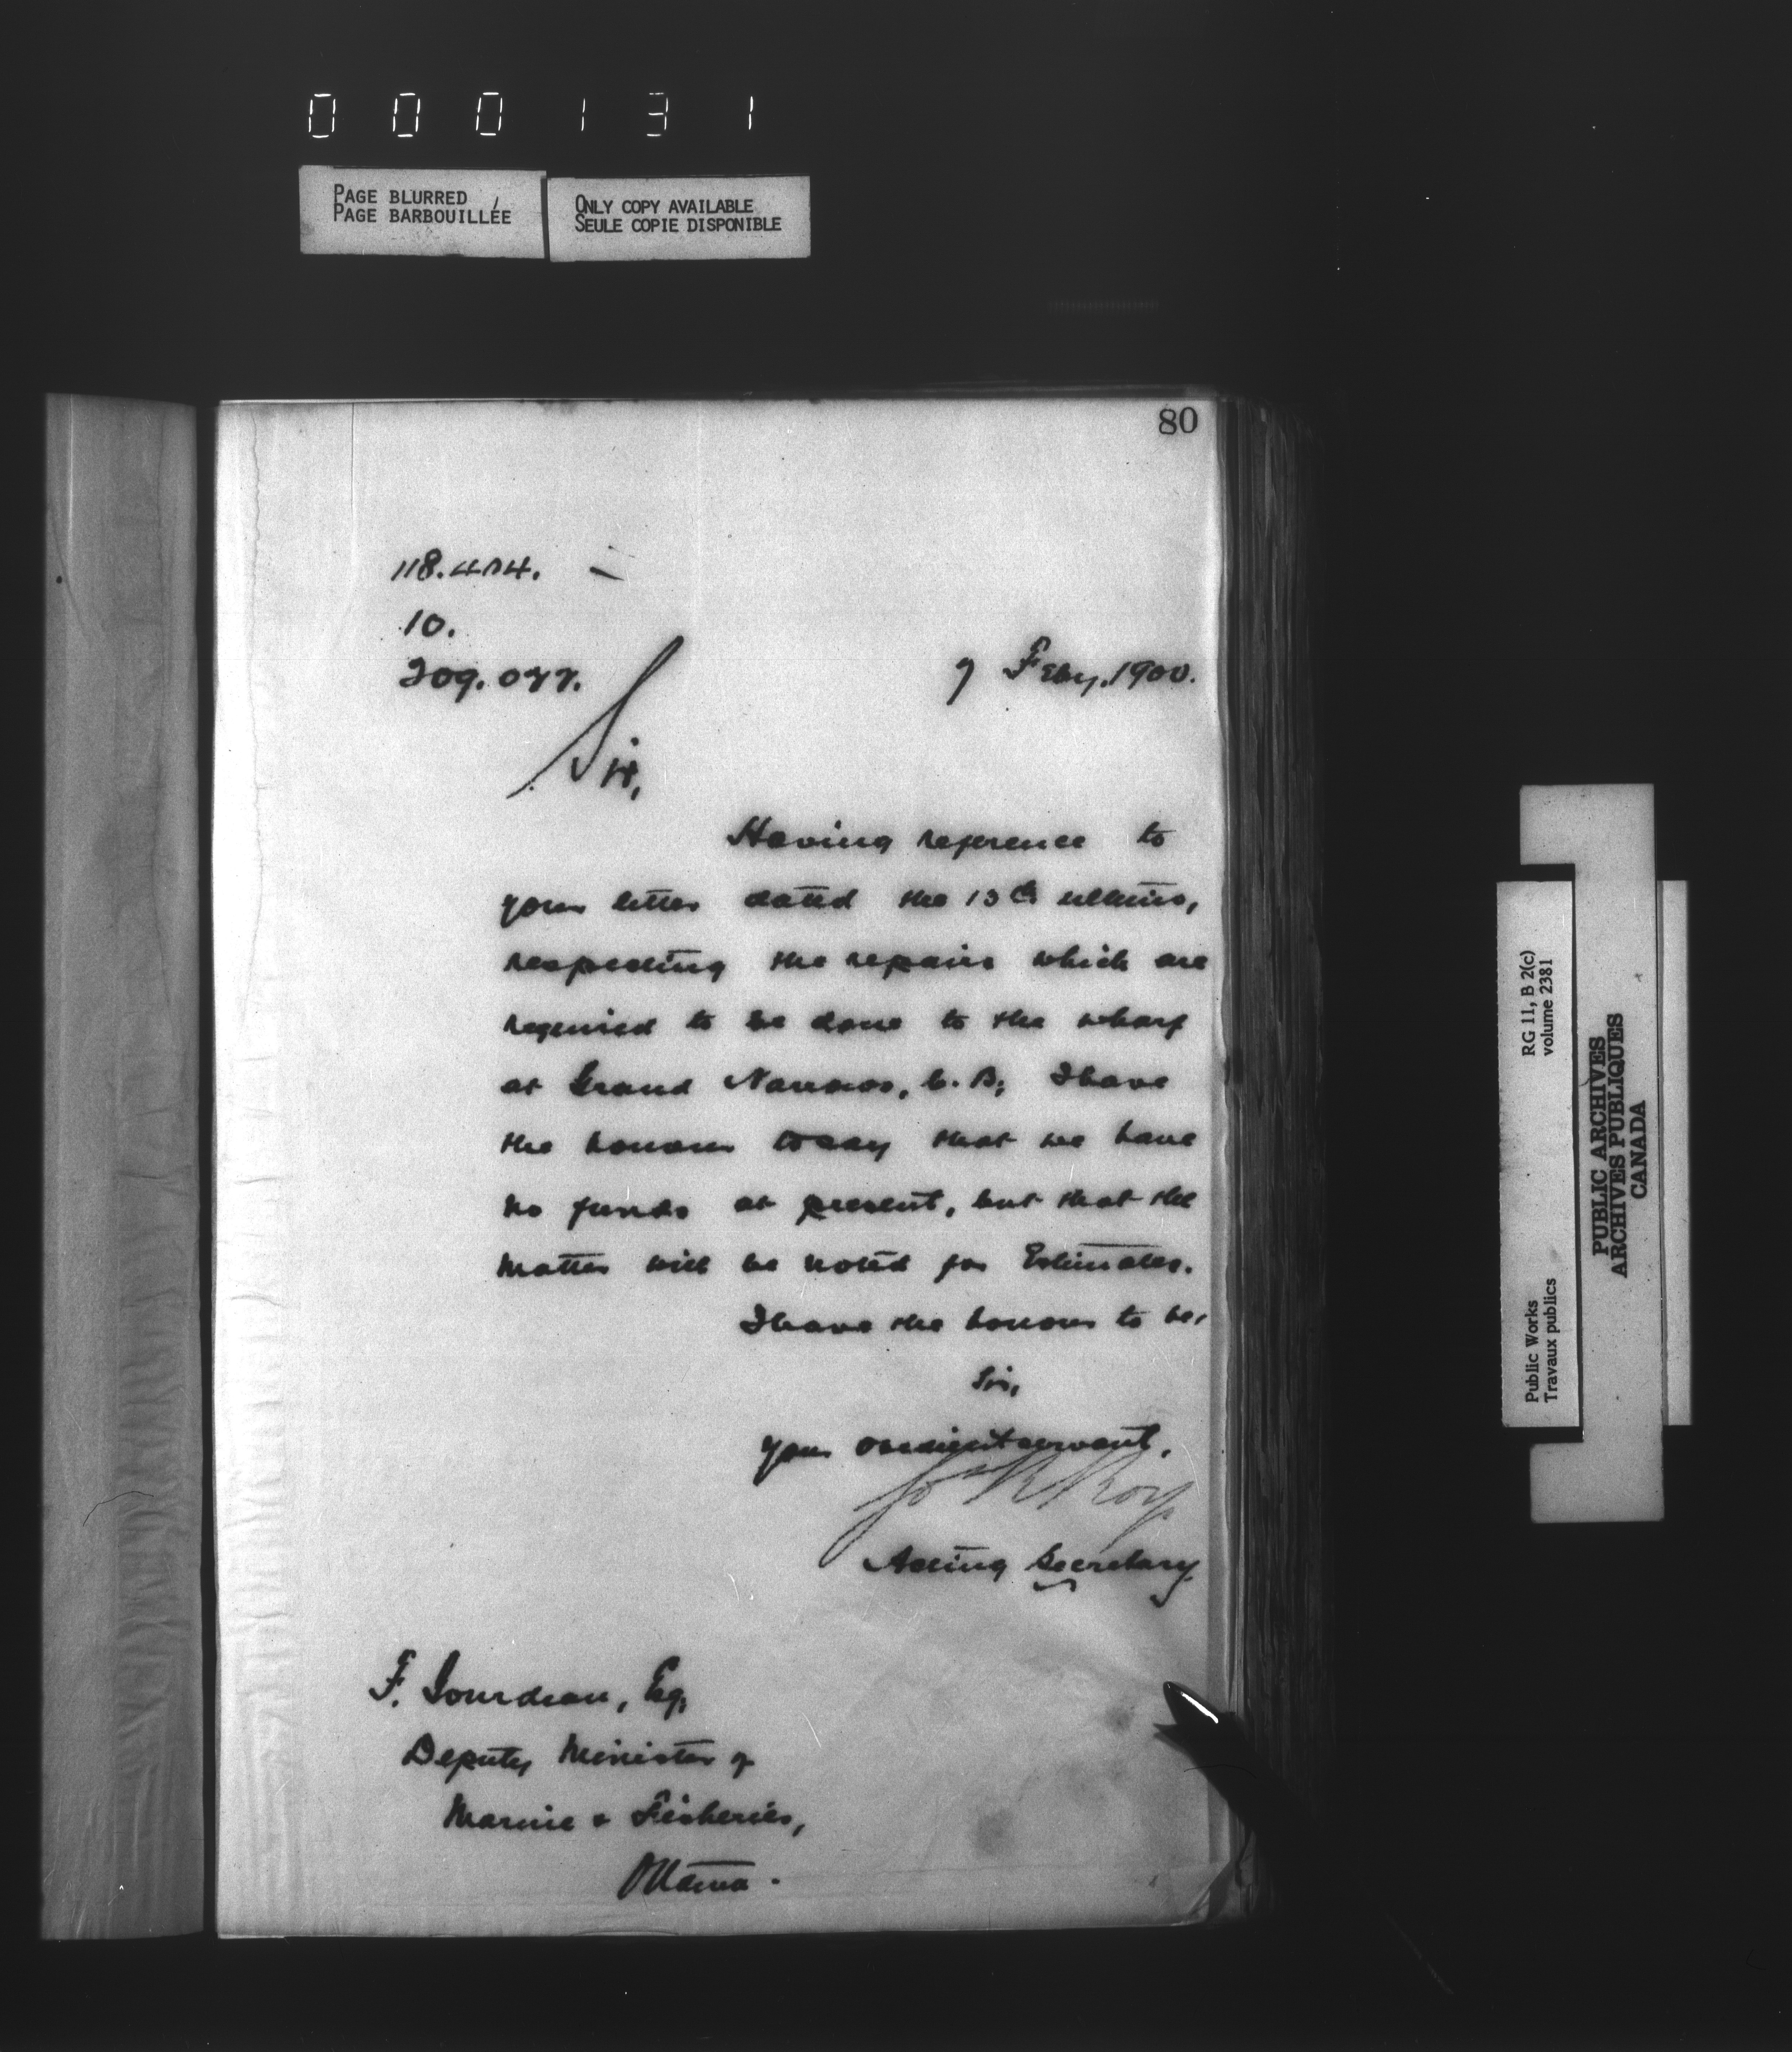 000131
PAGE BLURRED
PAGE BARBOUILLÉE
ONLY COPY AVAILABLE
SEULE COPIE DISPONIBLE
80
10.
7 Feby. 1900.
Sir,
Having reference to
your letter dated the 13th ultimo,
respecting the repairs which are
required to be done to the wharf
at Grand Narrows, C. B; I have
the honour to say that we have
no funds at present, but that the
matter will be noted for Estimates.
I have the honour to be,
Sir,
Your obedient servant,
Jos R Roy
Acting Secretary.
F. Gourdeau, Esq,
Deputy Minister of
Marine & Fisheries,
Ottawa.
Public Works
Travaux publics
RG 11, B 2(c)
volume 2381
PUBLIC ARCHIVES
ARCHIVES PUBLIQUES
CANADA